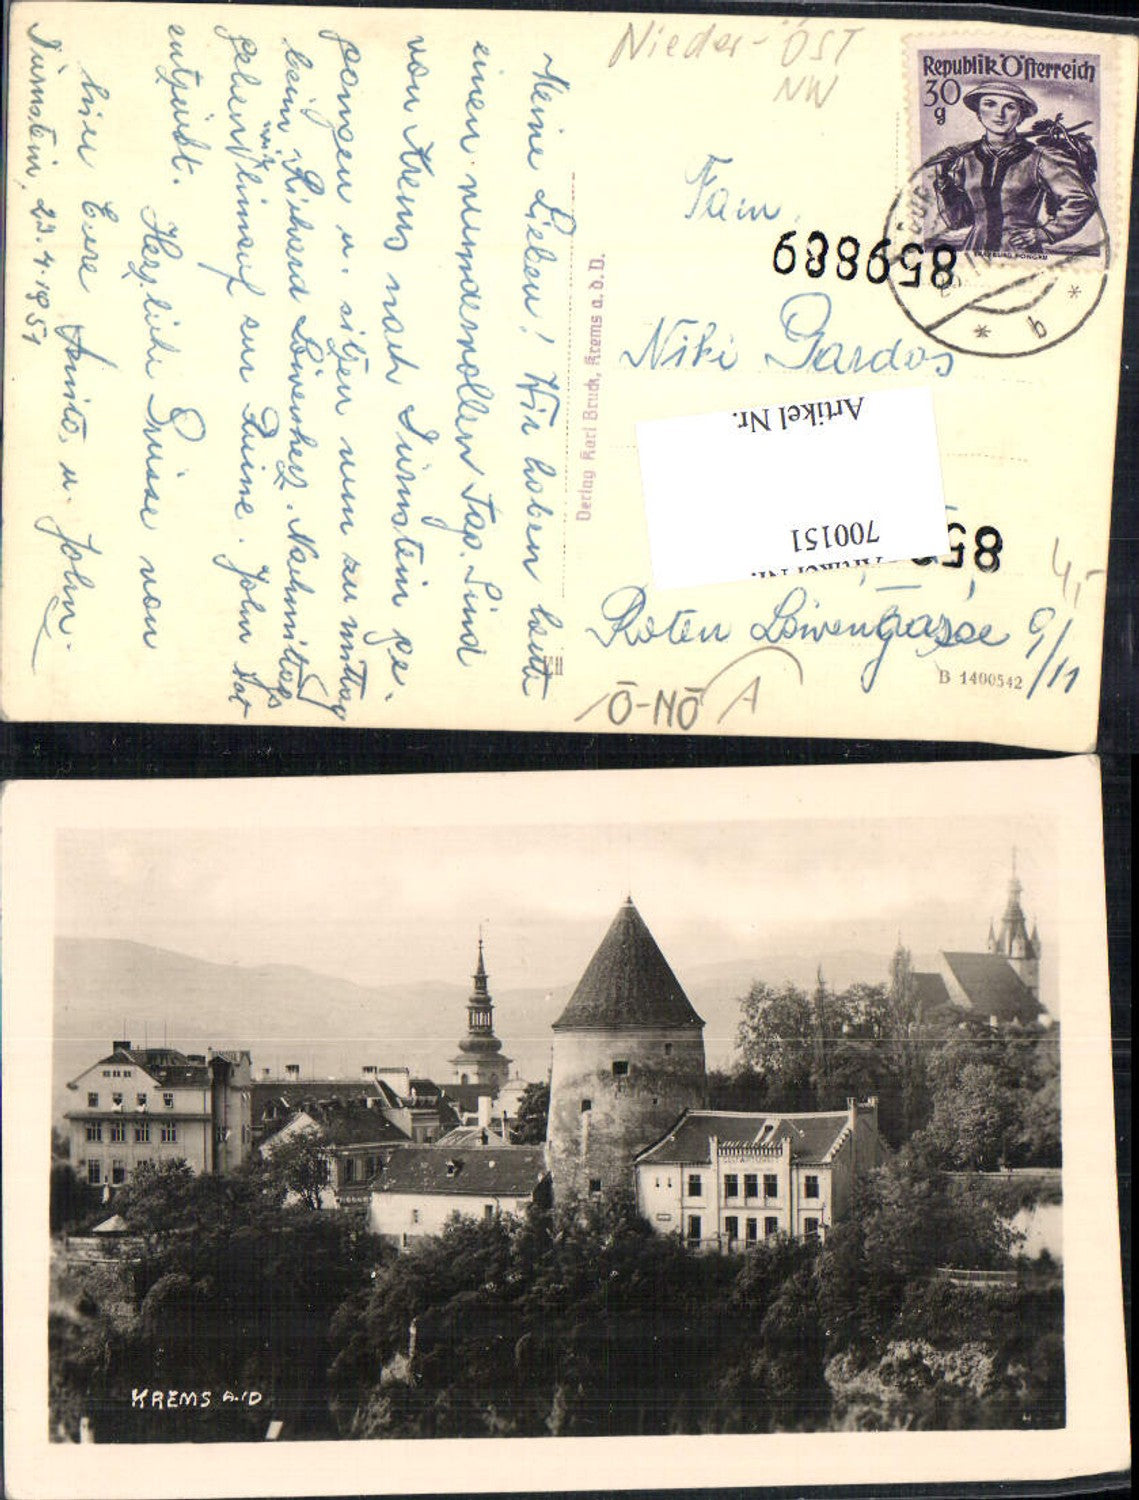 Nieder-ÖST
NW
Republik Österreich
30
g
SALZBURG, PONGAU
b
Meine Lieben! Wir haben heute
einen wundervollen Tag. Sind
von Krems nach Dürnstein ge-
gangen u. sitzen nun zu mittag
beim Richard Löwenherz. Nachmittags
gehen wir hinauf zur Ruine. John ist
entzückt.
Herzliche Grüsse von
hier Eure Anita u. John.
Dürnstein, 23.4.1951
Verlag Karl Bruck, Krems a. d. D.
Fam.
859889
Niki Gardos
Artikel Nr.
700151
Artikel Nr.
Roten Löwengasse 9/11
4,-
B 1400542
Ö-NÖ
A
KREMS A./D